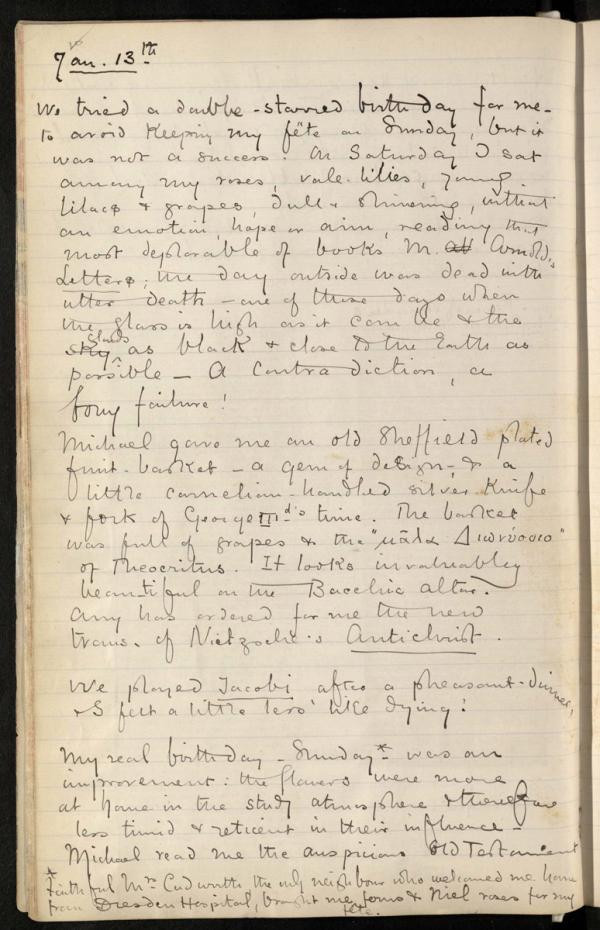 Jan. 13th
We tried a double-starred birthday for me-
to avoid keeping my fête on Sunday, but it
was not a success. On Saturday I sat
among my roses, vale-lilies, young
lilacs & grapes, dull & shivering, without
an emotion, hope or aim, reading that
most deplorable of books M. Arnold's
Letters; the day outside was dead with
utter death – one of those days when
the glass is high as it can be & the
clouds as black & close to the Earth as
possible – A contradiction, a
foggy failure!
Michael gave me an old Sheffield plated
fruit-basket – a gem of design – & a
little carnelian-handled silver knife
& fork of George IIId's time. The basket
was full of grapes & the "μᾶλα Διωνύσοιο"
of Theocritus. It looks invaluably
beautiful on the Bacchic altar.
Amy has ordered for me the new
trans. of Nietzsche's Antichrist.
We played Jacobi after a pheasant-dinner,
& I felt a little less like dying!
My real birthday – Sunday* – was an
improvement: the flowers were more
at home in the study atmosphere & therefore
less timid & reticent in their influence –
Michael read me the auspicious Old Testament
* Faithful Mrs Cudworth, the only neighbour who welcomed me home
from Dresden Hospital, brought me ferns & Niel roses for my
fête.